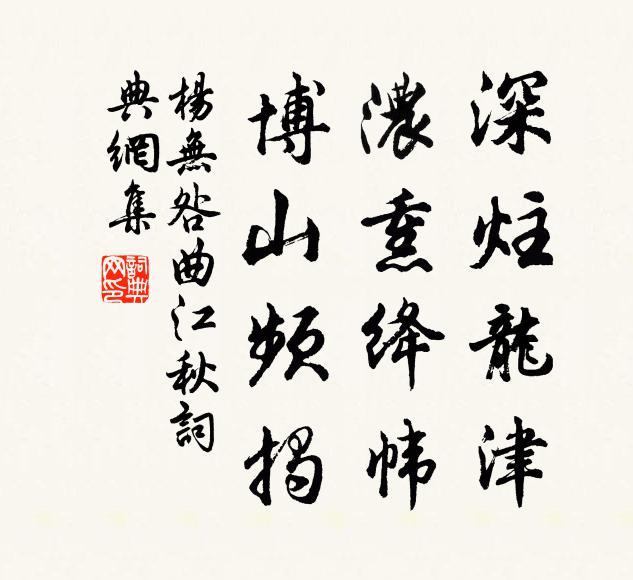 深炷龍津
濃熏絳幃
博山頻揭
楊無咎曲江秋詞
典網集
詞典網印